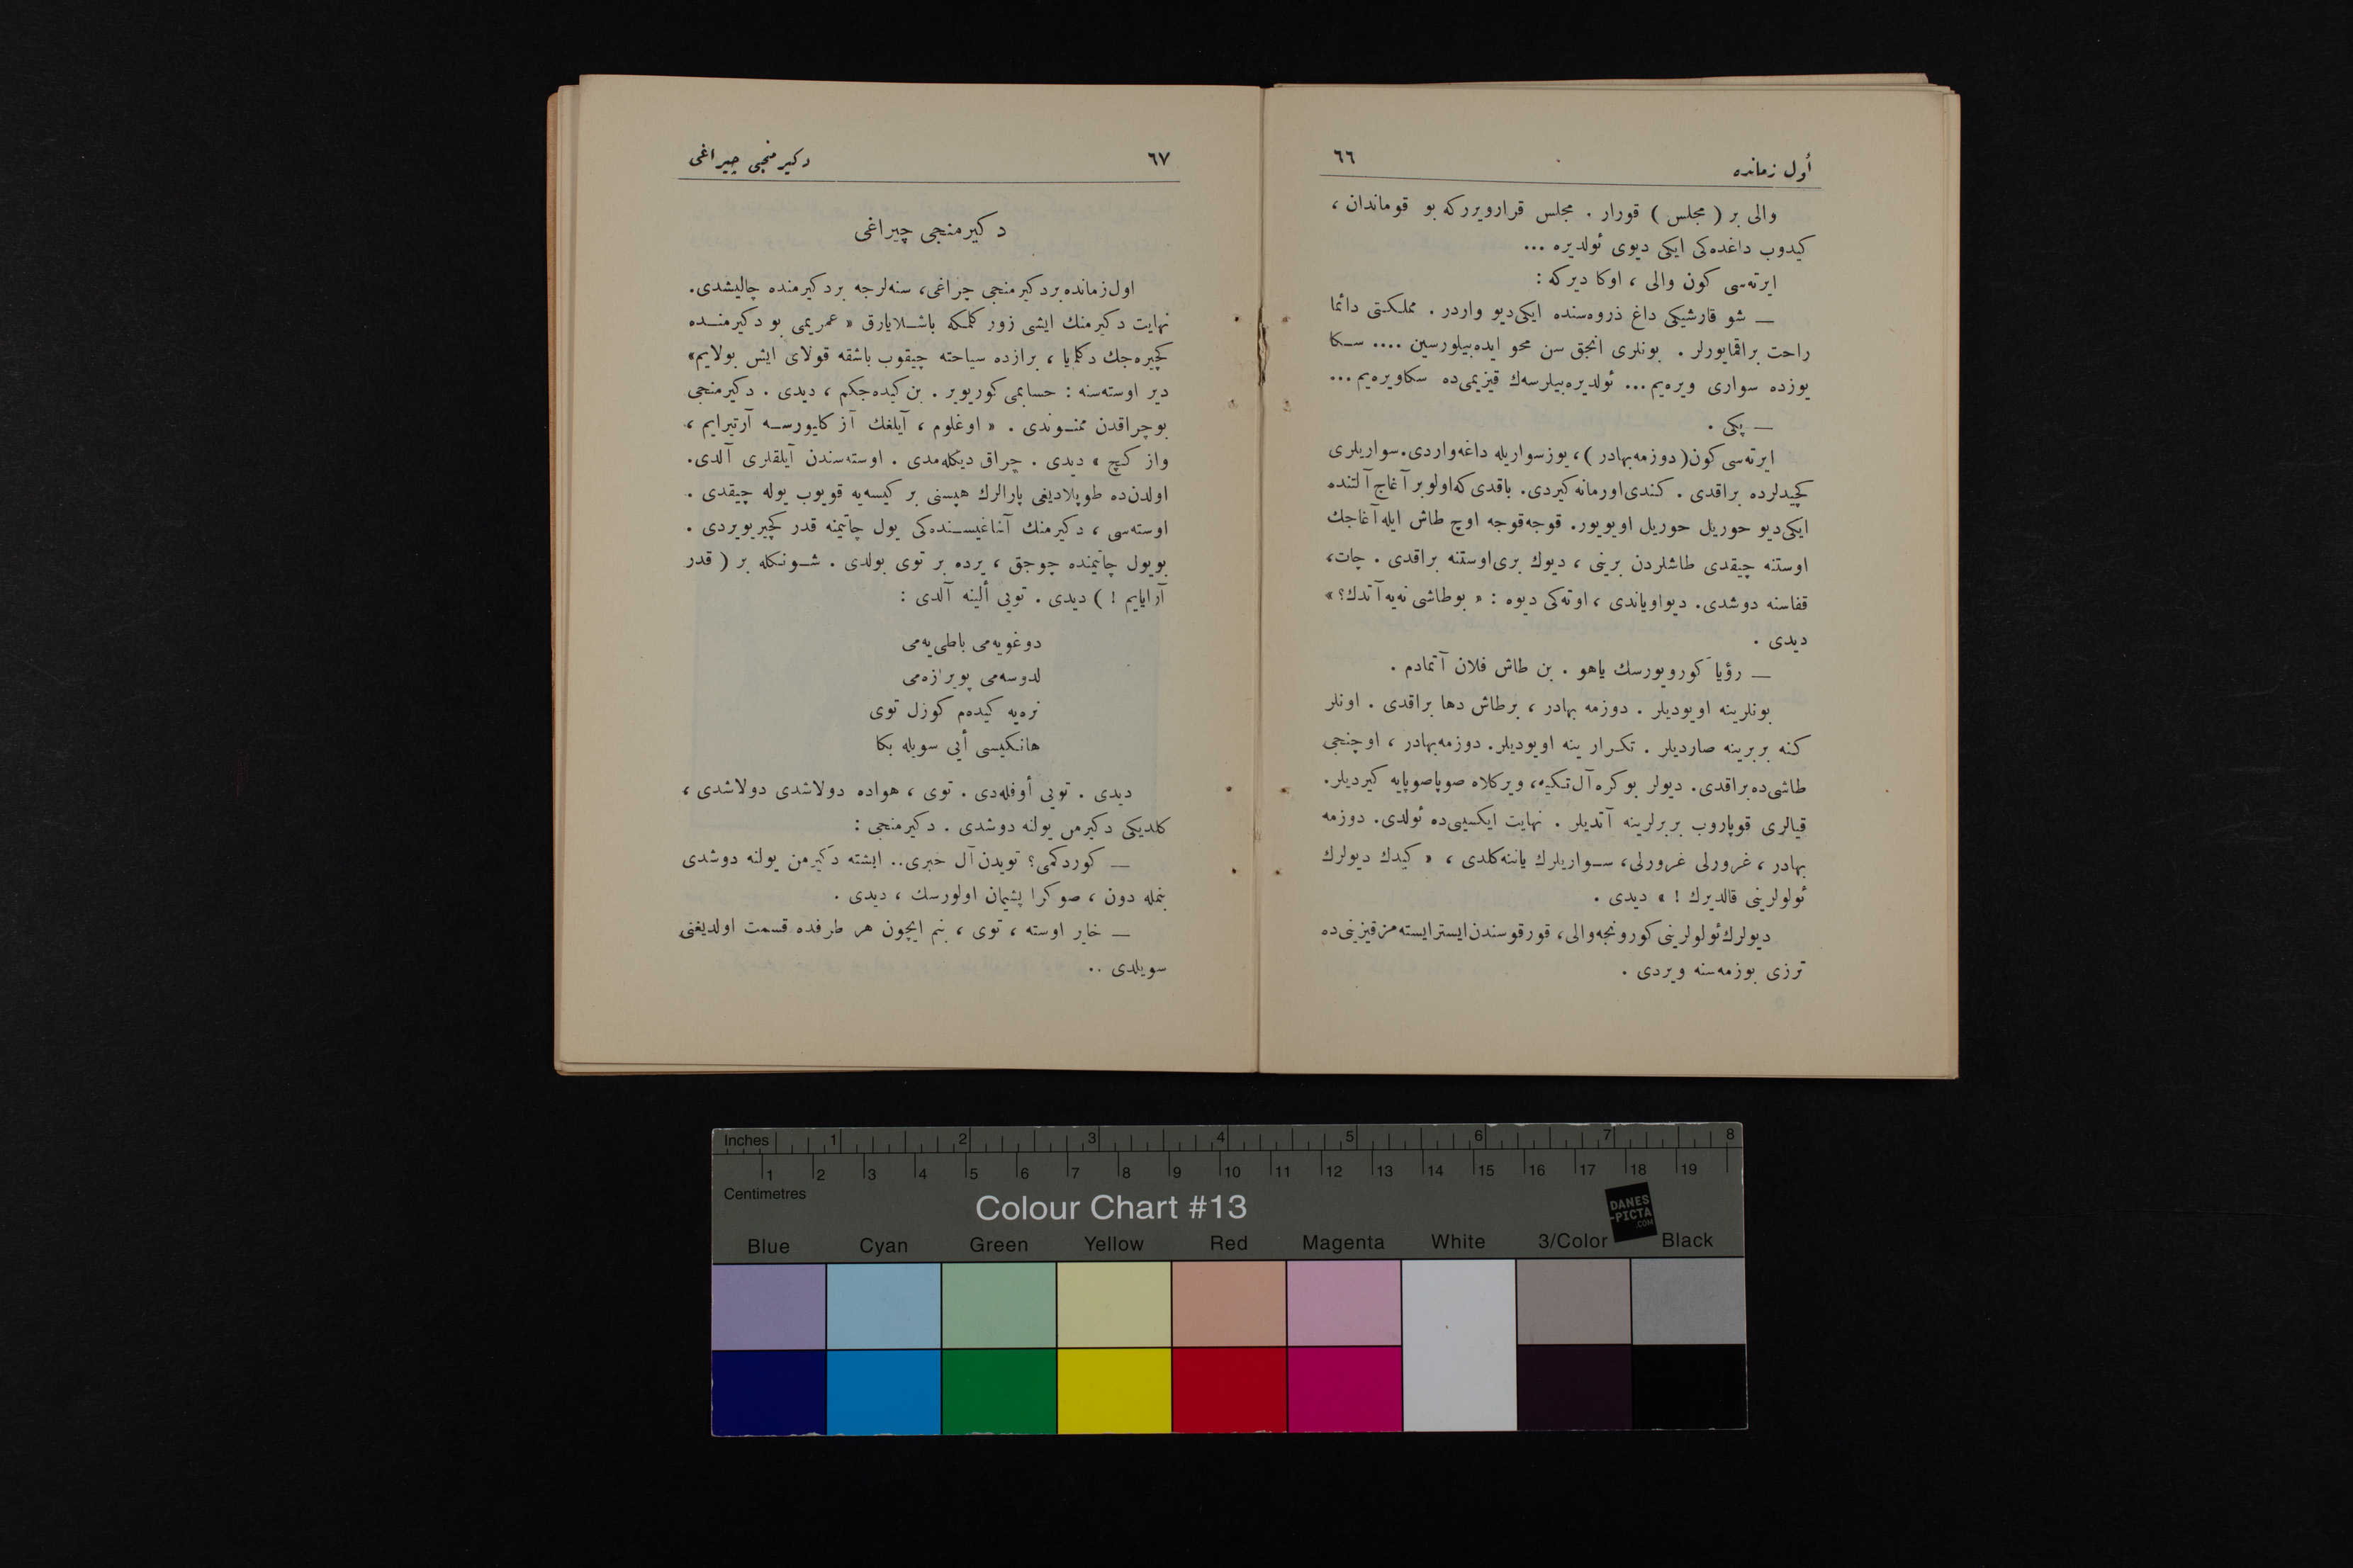 أول زمانده ٦٦
والی بر ( مجلس ) قورار . مجلس قرارویررکه بو قوماندان ،
کیدوب داغده‌کی ایکی دیوی ئولدیره ...
ایرته‌سی کون والی ، اوکا دیرکه :
— شو قارشیکی داغ ذروه‌سنده ایکی‌دیو واردر . مملکتی دائما
راحت براقمایورلر . بونلری انجق سن محو ایده‌بیلورسین .... سکا
یوزده سواری ویره‌یم ... ئولدیره‌بیلرسه‌ك قیزیمی‌ده سکاویره‌یم ...
— پکی .
ایرته‌سی کون(دوزمه‌بهادر )، یوزسواریله داغه‌واردی.سواریلری
کچیدلرده براقدی . کندی‌اورمانه‌کیردی. باقدی‌که‌اولوبر آغاج‌آلتنده
ایکی‌دیو حوریل حوریل اویویور. قوجه‌قوجه اوچ طاش ایله‌آغاجك
اوستنه چیقدی طاشلردن برینی ، دیوك بری‌اوستنه براقدی . چات،
قفاسنه دوشدی. دیواویاندی ، اوته‌کی دیوه : « بوطاشی نه‌یه‌آتدك؟ »
دیدی .
— رؤیا کورویورسك یاهو . بن طاش فلان آتمادم .
بونلرینه اویودیلر . دوزمه بهادر ، برطاش دها براقدی . اونلر
کنه بربرینه صاردیلر . تکرار ینه اویودیلر. دوزمه‌بهادر ، اوچنجی
طاشی‌ده‌براقدی. دیولر بوکره آل‌تکیه، ویرکلاه صوپاصوپایه کیردیلر.
قیالری قوپاروب بربرلرینه آتدیلر . نهایت ایکسیی‌ده ئولدی. دوزمه
بهادر ، غرورلی غرورلی، سواریلرك یاننه‌کلدی ، « کیدك دیولرك
ئولولرینی قالدیرك ! » دیدی .
دیولرك‌ئولولرینی‌کورونجه‌والی، قورقوسندن‌ایستر‌ایسته‌مزقیزینی‌ده
ترزی بوزمه‌سنه ویردی .
٦٧ دکیرمنجی چیراغی
دکیرمنجی چیراغی
اول‌زمانده‌بردکیرمنجی چراغی، سنه‌لرجه بردکیرمنده چالیشدی.
نهایت دکیرمنك ایشی زور کلمکه باشلایارق « عمریمی بو دکیرمنده
کچیره‌جك دکلم‌یا ، برازده سیاحته چیقوب باشقه قولای ایش بولایم»
دیر اوسته‌سنه : حسابمی کوریویر . بن‌کیده‌جکم ، دیدی . دکیرمنجی
بوچراقدن ممنوندی . « اوغلوم ، آیلغك آز کلیورسه آرتیرایم ،
واز کچ » دیدی . چراق دیکله‌مدی . اوسته‌سندن آیلقلری آلدی.
اولدن‌ده طوپلادیغی پارالرك هپسنی بر کیسه‌یه قویوب یوله چیقدی .
اوسته‌سی ، دکیرمنك آشاغیسنده‌کی یول چاتیمنه قدر کچیریویردی .
بویول چاتیمنده چوجق ، یرده بر توی بولدی . شونکله بر ( قدر
آرایایم ! ) دیدی . تویی ألینه آلدی :
دوغویه‌می باطی‌یه‌می
لدوسه‌می پویرازه‌می
نره‌یه کیده‌م کوزل توی
هانکیسی أیی سویله بکا
دیدی . تویی أوفله‌دی . توی ، هواده دولاشدی دولاشدی ،
کلدیکی دکیرمن یولنه دوشدی . دکیرمنجی :
— کوردکمی؟ تویدن‌آل خبری.. ایشته دکیرمن یولنه دوشدی
بنمله دون ، صوکرا پشیمان اولورسك ، دیدی .
— خایر اوسته ، توی ، بنم ایچون هر طرفده قسمت اولدیغنی
سویلدی ..
Inches 1 2 3 4 5 6 7 8
1 2 3 4 5 6 7 8 9 10 11 12 13 14 15 16 17 18 19
Centimetres
Colour Chart #13
DANES
-PICTA
.COM
Blue Cyan Green Yellow Red Magenta White 3/Color Black